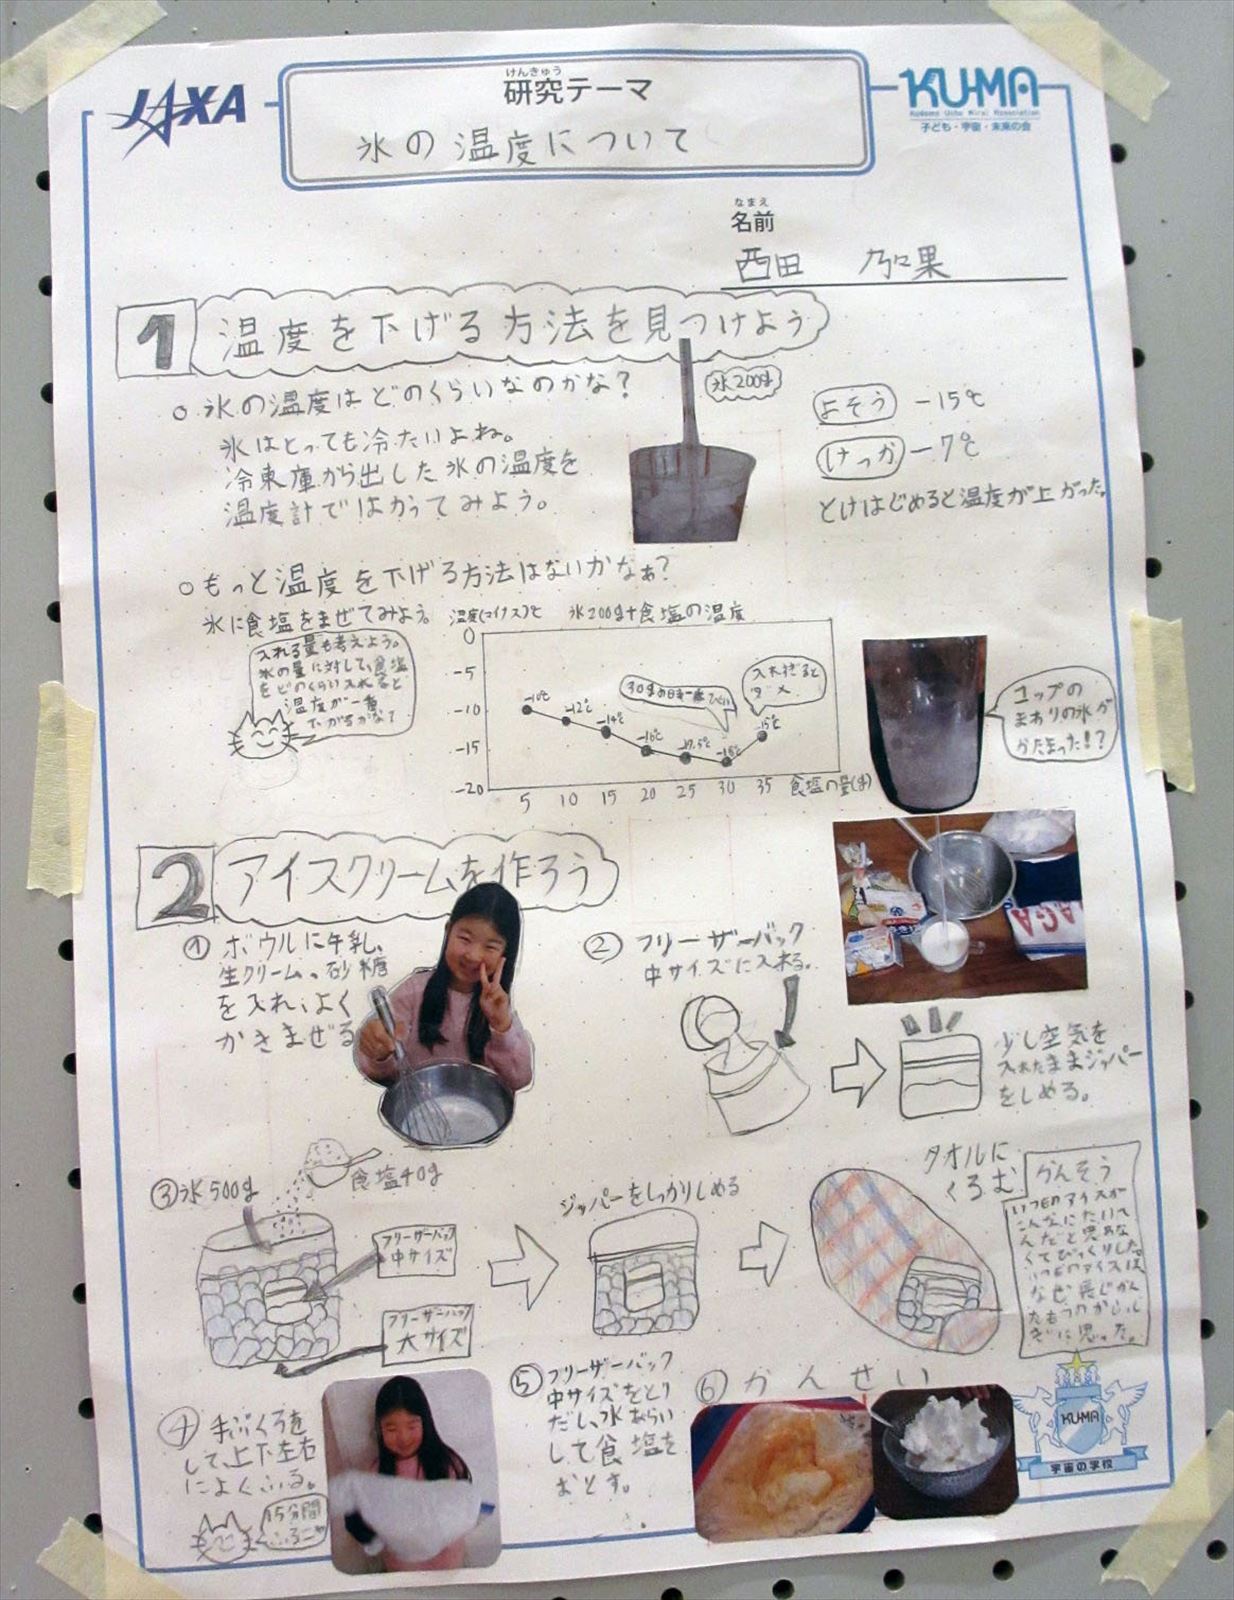 JAXA
けんきゅう
研究テーマ
氷の温度について
KU-MA
Kodomo Uchu Mirai Association
子ども・宇宙・未来の会
なまえ
名前
西田
1 温度を下げる方法を見つけよう
○氷の温度はどのくらいなのかな?
氷はとっても冷たいよね。
冷東庫から出した氷の温度を
温度計ではかってみよう。
氷200g
よそう -15℃
けっか -7℃
とけはじめると温度が上がった。
○もっと温度を下げる方法はないかなぁ?
氷に食塩をまぜてみよう。
入れる量も考えよう。
氷の量に対して、食塩
をどのくらい入れると
温度が一番
下がるかな?
温度(マイナス)℃
氷200g+食塩の温度
0
-5
-10
-15
-20
-10℃
-12℃
-14℃
-16℃
-17.5℃
-18℃
-15℃
30gの日寺一番
入れすぎると
ダメ
5 10 15 20 25 30 35 食塩の量(g)
コップの
まわりの氷が
かたまった!?
2 アイスクリームを作ろう
① ボウルに牛乳、
生クリーム、砂糖
を入れ、よく
かきまぜる
② フリーザーバック
中サイズに入れる。
少し空気を
入れたままジッパー
をしめる。
③氷500g
食塩40g
フリーザーバック
中サイズ
フリーザーバック
大サイズ
ジッパーをしっかりしめる
タオルに
くるむ
かんそう
いつものアイスが
こんなにたいへ
んだと思わな
くてびっくりした。
いつものアイスは、
なぜ長じかん
たもつのかふし
ぎに思った。
④ 手ぶくろを
して、上下左右
によくふる。
15分間
ふるニャ
⑤ フリーザーバック
中サイズをとり
だし、水あらい
して食塩を
おとす。
⑥ かんせい
KU-MA
宇宙の学校